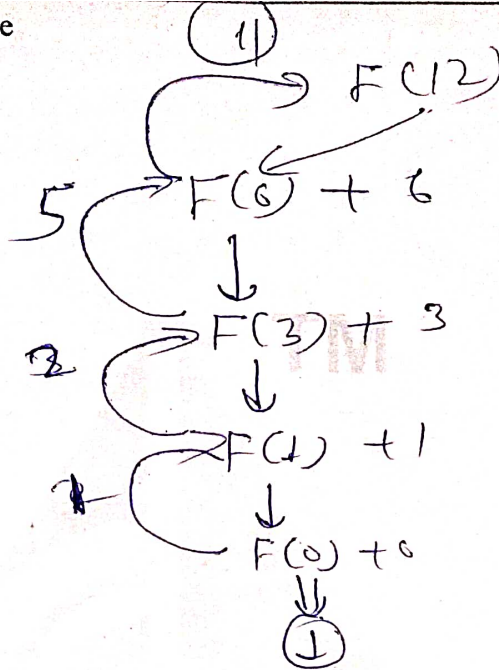 e
11
F(12)
F(6) + 6
5
F(3) + 3
2
F(1) + 1
1
F(0) + 0
1